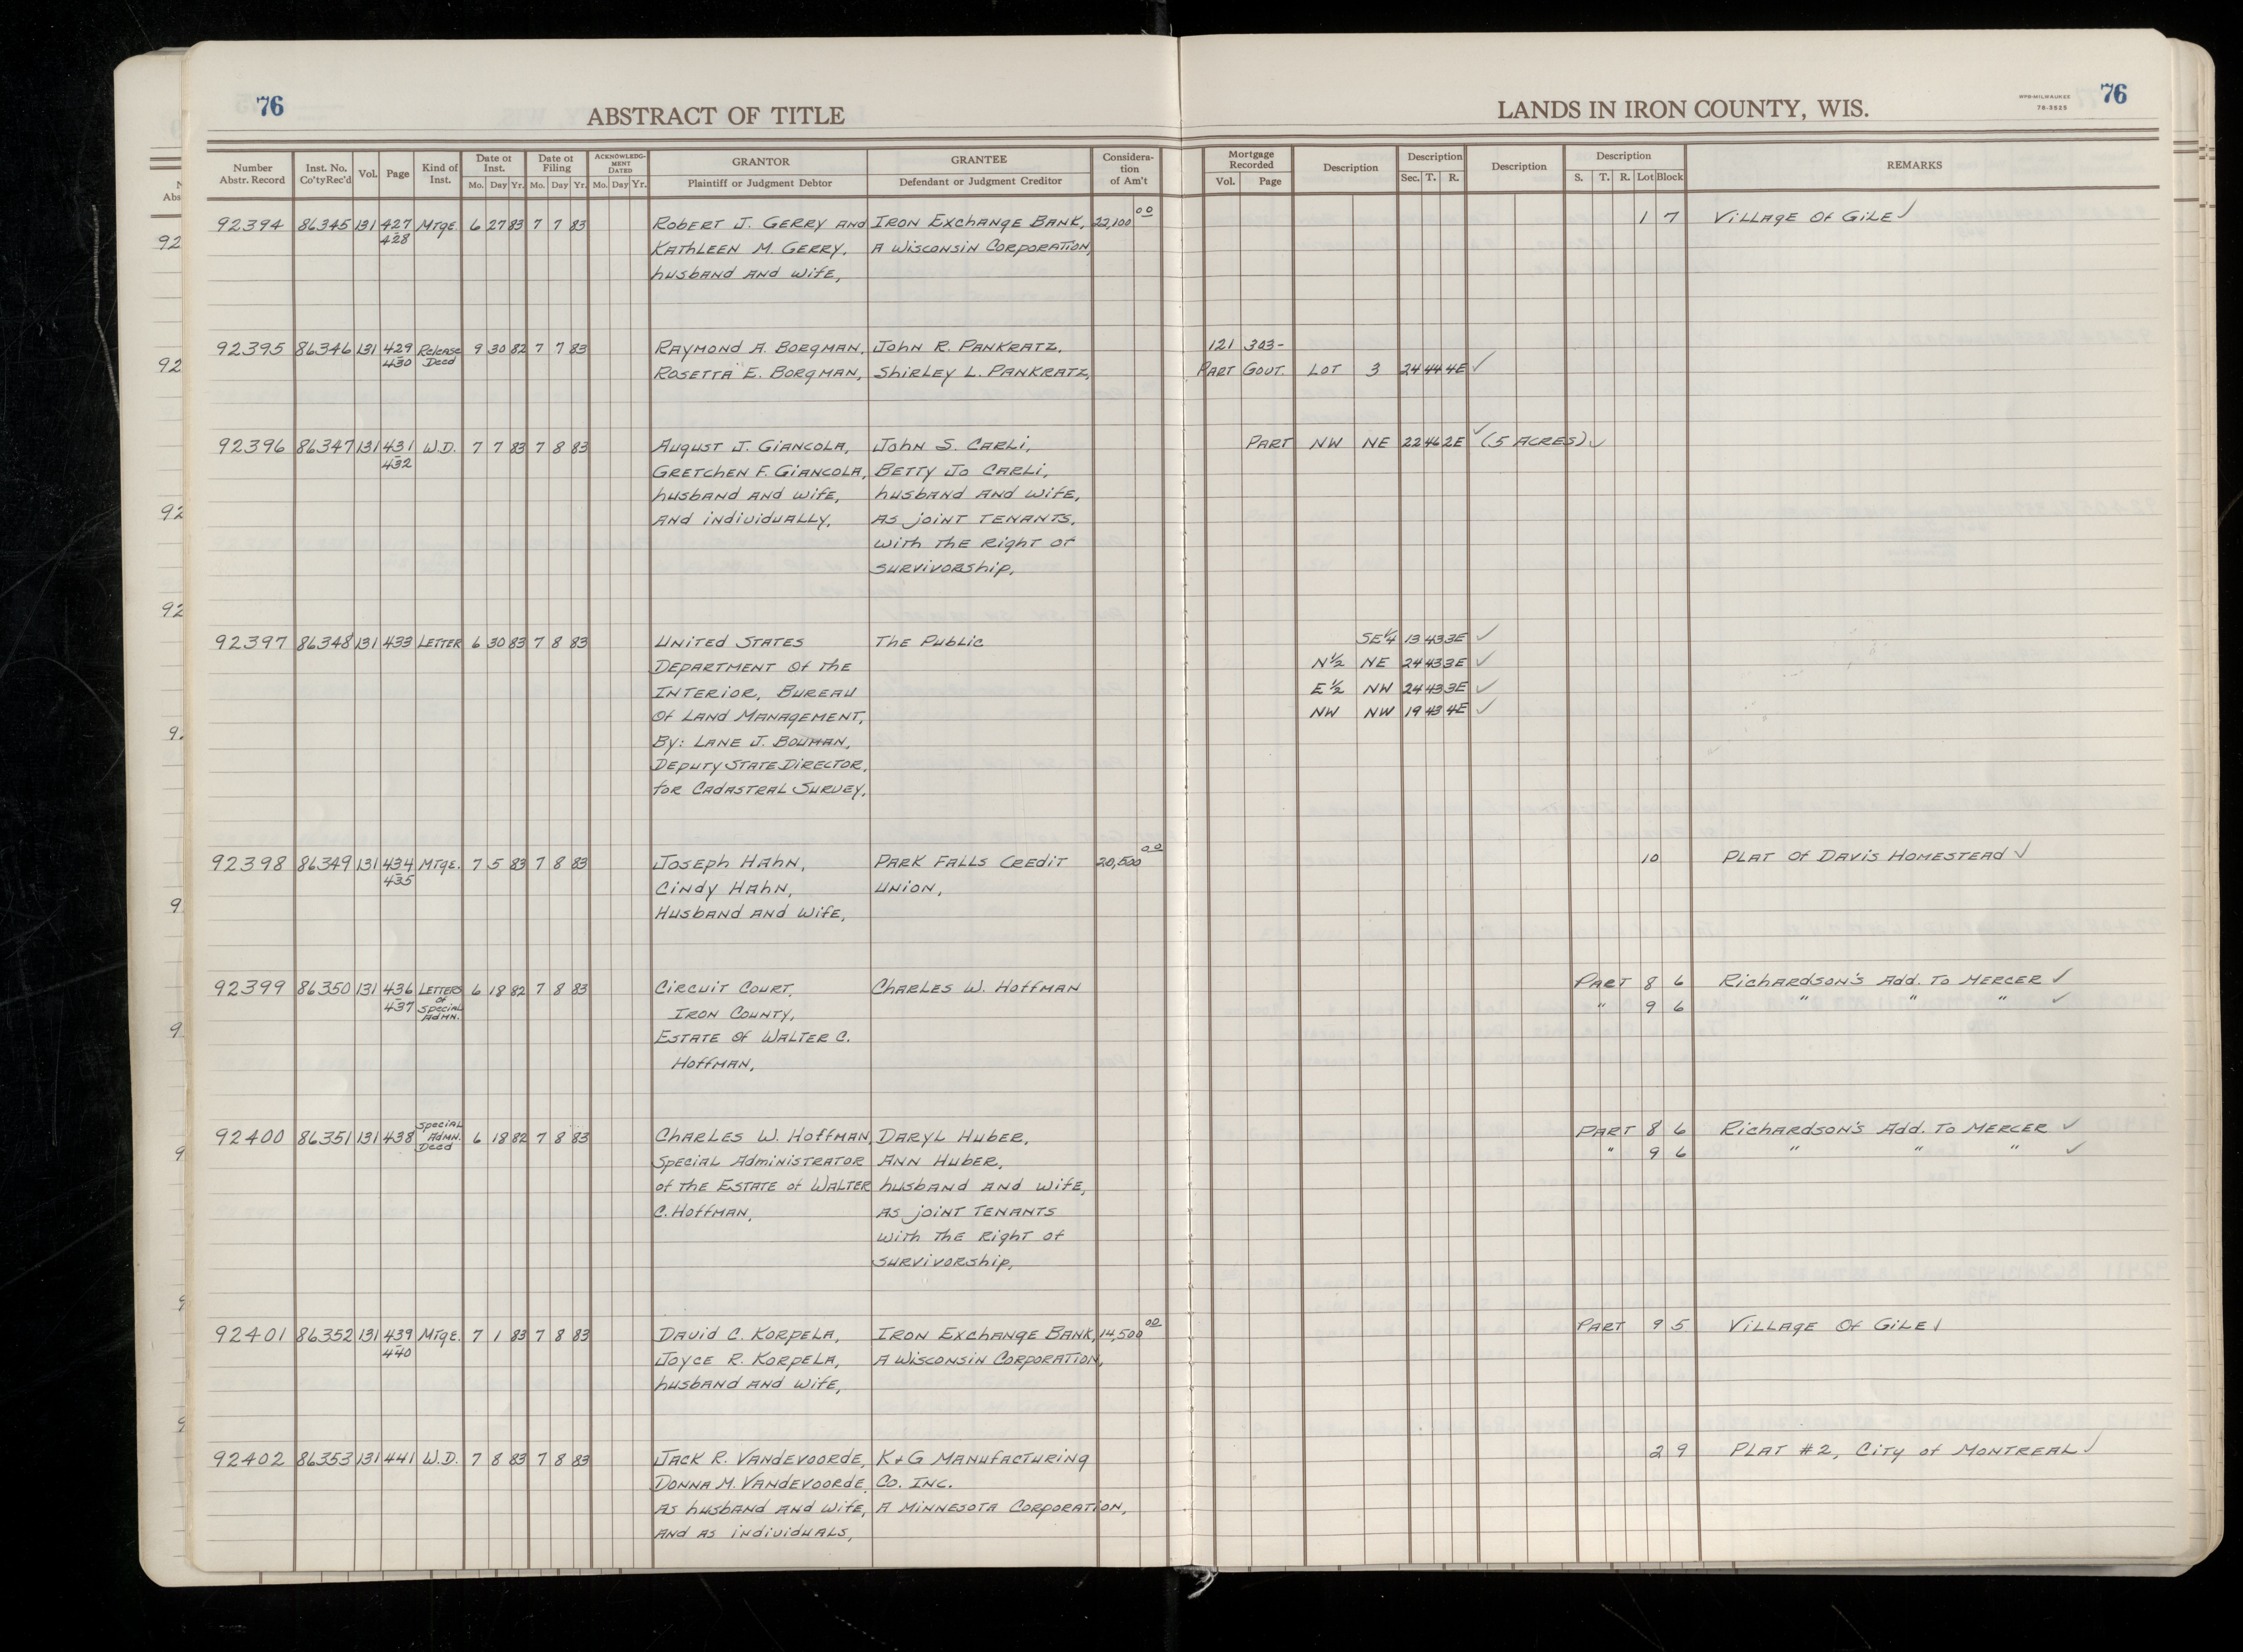 76
ABSTRACT OF TITLE
LANDS IN IRON COUNTY, WIS.
MPB-MILWAUKEE
78-3525
76
Number Abstr. Record
Inst. No. Co'ty Rec'd
Vol.
Page
Kind of Inst.
Date of Inst.
Mo. Day Yr.
Date of Filing
Mo. Day Yr.
ACKNOWLEDGMENT DATED
Mo. Day Yr.
GRANTOR
Plaintiff or Judgment Debtor
GRANTEE
Defendant or Judgment Creditor
Consideration of Am't
Mortgage Recorded
Vol. Page
Description
Description
Sec. T. R.
Description
Description
S. T. R. Lot Block
REMARKS
92394 86345 131 427 Mtge. 6 27 83 7 7 83 Robert J. Gerry and Iron Exchange Bank, 22,100 00 1 7 Village Of Gile ✓
-428 Kathleen M. Gerry, A Wisconsin Corporation,
husband and wife,
92395 86346 131 429 Release 9 30 82 7 7 83 Raymond A. Borgman, John R. Pankratz, 121 303-
-430 Deed Rosetta E. Borgman, Shirley L. Pankratz, Part Govt. Lot 3 24 44 4E ✓
92396 86347 131 431 W.D. 7 7 83 7 8 83 August J. Giancola, John S. Carli, Part NW NE 22 46 2E ✓ (5 Acres) ✓
-432 Gretchen F. Giancola, Betty Jo Carli,
husband and wife, husband and wife,
and individually, as joint tenants,
with the right of
survivorship,
92397 86348 131 433 Letter 6 30 83 7 8 83 United States The Public SE¼ 13 43 3E ✓
Department of the N½ NE 24 43 3E ✓
Interior, Bureau E½ NW 24 43 3E ✓
Of Land Management, NW NW 19 43 4E ✓
By: Lane J. Bouman,
Deputy State Director,
for Cadastral Survey,
92398 86349 131 434 Mtge. 7 5 83 7 8 83 Joseph Hahn, Park Falls Credit 20,500 00 10 Plat Of Davis Homestead ✓
-435 Cindy Hahn, Union,
Husband and wife,
92399 86350 131 436 Letters 6 18 82 7 8 83 Circuit Court, Charles W. Hoffman Part 8 6 Richardson's Add. To Mercer ✓
-437 of Special Admn. Iron County, " 9 6 " " " ✓
Estate Of Walter C.
Hoffman,
92400 86351 131 438 Special Admn. Deed 6 18 82 7 8 83 Charles W. Hoffman Daryl Huber, Part 8 6 Richardson's Add. To Mercer ✓
Special Administrator Ann Huber, " 9 6 " " " ✓
of the Estate of Walter husband and wife,
C. Hoffman, as joint tenants
with the right of
survivorship,
92401 86352 131 439 Mtge. 7 1 83 7 8 83 David C. Korpela, Iron Exchange Bank, 14,500 00 Part 9 5 Village Of Gile ✓
-440 Joyce R. Korpela, A Wisconsin Corporation,
husband and wife,
92402 86353 131 441 W.D. 7 8 83 7 8 83 Jack R. Vandevoorde, K+G Manufacturing 2 9 Plat #2, City of Montreal ✓
Donna M. Vandevoorde, Co. Inc.
as husband and wife, A Minnesota Corporation,
and as individuals,